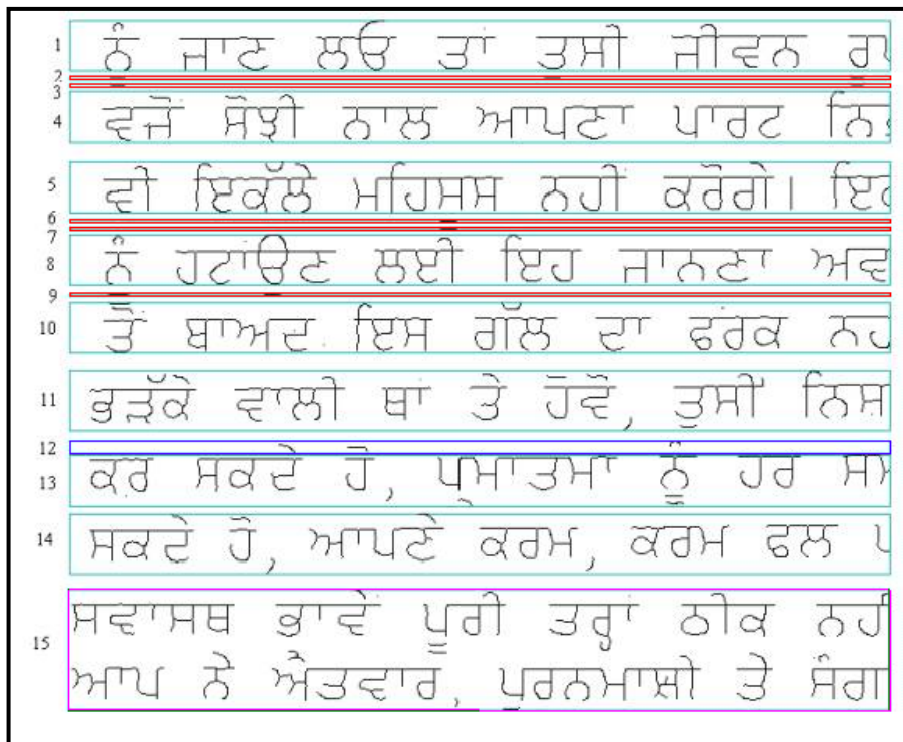 1 ਨੂੰ ਜਾਣ ਲਓ ਤਾਂ ਤੁਸੀ ਜੀਵਨ
2
3
4 ਵਜੋ ਸੋਝੀ ਨਾਲ ਆਪਣਾ ਪਾਰਟ
5 ਵੀ ਇਕੱਲੇ ਮਹਿਸੂਸ ਨਹੀ ਕਰੋਗੇ।
6
7
8 ਨੂੰ ਹਟਾਉਣ ਲਈ ਇਹ ਜਾਨਣਾ ਅਵ
9
10 ਤੋਂ ਬਾਅਦ ਇਸ ਗੱਲ ਦਾ ਫਰਕ ਨਹ
11 ਭੜੱਕੇ ਵਾਲੀ ਥਾਂ ਤੇ ਹੋਵੋ, ਤੁਸੀਂ ਨਿਸ
12
13 ਕਰ ਸਕਦੇ ਹੋ, ਪ੍ਰਮਾਤਮਾ ਨੂੰ ਹਰ ਸਮ
14 ਸਕਦੇ ਹੋ, ਆਪਣੇ ਕਰਮ, ਕਰਮ ਫਲ
15 ਸਵਾਸਥ ਭਾਵੇ ਪੂਰੀ ਤਰ੍ਹਾਂ ਠੀਕ ਨਹੀ
ਆਪ ਨੇ ਐਤਵਾਰ, ਪੂਰਨਮਾਸ਼ੀ ਤੇ ਸੰਗਰਾ